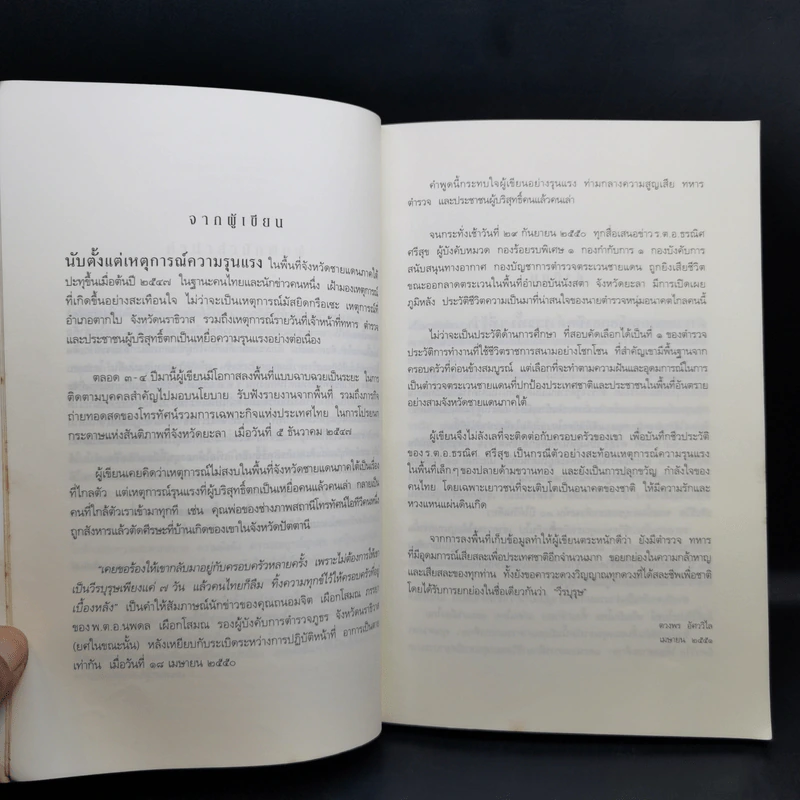 จากผู้เขียน
นับตั้งแต่เหตุการณ์ความรุนแรง ในพื้นที่จังหวัดชายแดนภาคใต้
ปะทุขึ้นเมื่อต้นปี ๒๕๔๗ ในฐานะคนไทยและนักข่าวคนหนึ่ง เฝ้ามองเหตุการณ์
ที่เกิดขึ้นอย่างสะเทือนใจ ไม่ว่าจะเป็นเหตุการณ์มัสยิดกรือเซะ เหตุการณ์ที่
อำเภอตากใบ จังหวัดนราธิวาส รวมถึงเหตุการณ์รายวันที่เจ้าหน้าที่ทหาร ตำรวจ
และประชาชนผู้บริสุทธิ์ตกเป็นเหยื่อความรุนแรงอย่างต่อเนื่อง
ตลอด ๓-๔ ปีมานี้ผู้เขียนมีโอกาสลงพื้นที่แบบฉาบฉวยเป็นระยะ ในการ
ติดตามบุคคลสำคัญไปมอบนโยบาย รับฟังรายงานจากพื้นที่ รวมถึงภารกิจ
ถ่ายทอดสดของโทรทัศน์รวมการเฉพาะกิจแห่งประเทศไทย ในการโปรยนก
กระดาษแห่งสันติภาพที่จังหวัดยะลา เมื่อวันที่ ๕ ธันวาคม ๒๕๔๗
ผู้เขียนเคยคิดว่าเหตุการณ์ไม่สงบในพื้นที่จังหวัดชายแดนภาคใต้เป็นเรื่อง
ที่ไกลตัว แต่เหตุการณ์รุนแรงที่ผู้บริสุทธิ์ตกเป็นเหยื่อคนแล้วคนเล่า กลายเป็น
คนที่ใกล้ตัวเราเข้ามาทุกที เช่น คุณพ่อของช่างภาพสถานีโทรทัศน์ไอทีวีคนหนึ่ง
ถูกสังหารแล้วตัดศีรษะที่บ้านเกิดของเขาในจังหวัดปัตตานี
"เคยขอร้องให้เขากลับมาอยู่กับครอบครัวหลายครั้ง เพราะไม่ต้องการให้เขา
เป็นวีรบุรุษเพียงแค่ ๗ วัน แล้วคนไทยก็ลืม ทิ้งความทุกข์ไว้ให้ครอบครัวที่อยู่
เบื้องหลัง" เป็นคำให้สัมภาษณ์นักข่าวของคุณถนอมจิต เผือกโสมณ ภรรยา
ของพ.ต.อ.นพดล เผือกโสมณ รองผู้บังคับการตำรวจภูธร จังหวัดนราธิวาส
(ยศในขณะนั้น) หลังเหยียบกับระเบิดระหว่างการปฏิบัติหน้าที่ อาการเป็นตาย
เท่ากัน เมื่อวันที่ ๑๘ เมษายน ๒๕๕๐
คำพูดนี้กระทบใจผู้เขียนอย่างรุนแรง ท่ามกลางความสูญเสีย ทหาร
ตำรวจ และประชาชนผู้บริสุทธิ์คนแล้วคนเล่า
จนกระทั่งเช้าวันที่ ๒๙ กันยายน ๒๕๕๐ ทุกสื่อเสนอข่าวร.ต.อ.ธรณิศ
ศรีสุข ผู้บังคับหมวด กองร้อยรบพิเศษ ๑ กองกำกับการ ๑ กองบังคับการ
สนับสนุนทางอากาศ กองบัญชาการตำรวจตระเวนชายแดน ถูกยิงเสียชีวิต
ขณะออกลาดตระเวนในพื้นที่อำเภอบันนังสตา จังหวัดยะลา มีการเปิดเผย
ภูมิหลัง ประวัติชีวิตความเป็นมาที่น่าสนใจของนายตำรวจหนุ่มอนาคตไกลคนนี้
ไม่ว่าจะเป็นประวัติด้านการศึกษา ที่สอบคัดเลือกได้เป็นที่ ๑ ของตำรวจ
ประวัติการทำงานที่ใช้ชีวิตราชการสนามอย่างโชกโชน ที่สำคัญเขามีพื้นฐานจาก
ครอบครัวที่ค่อนข้างสมบูรณ์ แต่เลือกที่จะทำตามความฝันและอุดมการณ์ในการ
เป็นตำรวจตระเวนชายแดนที่ปกป้องประเทศชาติและประชาชนในพื้นที่อันตราย
อย่างสามจังหวัดชายแดนภาคใต้
ผู้เขียนจึงไม่ลังเลที่จะติดต่อกับครอบครัวของเขา เพื่อบันทึกชีวประวัติ
ของร.ต.อ.ธรณิศ ศรีสุข เป็นกรณีตัวอย่างสะท้อนเหตุการณ์ความรุนแรง
ในพื้นที่เล็กๆของปลายด้ามขวานทอง และยังเป็นการปลุกขวัญ กำลังใจของ
คนไทย โดยเฉพาะเยาวชนที่จะเติบโตเป็นอนาคตของชาติ ให้มีความรักและ
หวงแหนแผ่นดินเกิด
จากการลงพื้นที่เก็บข้อมูลทำให้ผู้เขียนตระหนักดีว่า ยังมีตำรวจ ทหาร
ที่มีอุดมการณ์เสียสละเพื่อประเทศชาติอีกจำนวนมาก ขอยกย่องในความกล้าหาญ
และเสียสละของทุกท่าน ทั้งยังขอคารวะดวงวิญญาณทุกดวงที่ได้สละชีพเพื่อชาติ
โดยได้รับการยกย่องในชื่อเดียวกันว่า "วีรบุรุษ"
ดวงพร อัศววิไล
เมษายน ๒๕๕๑